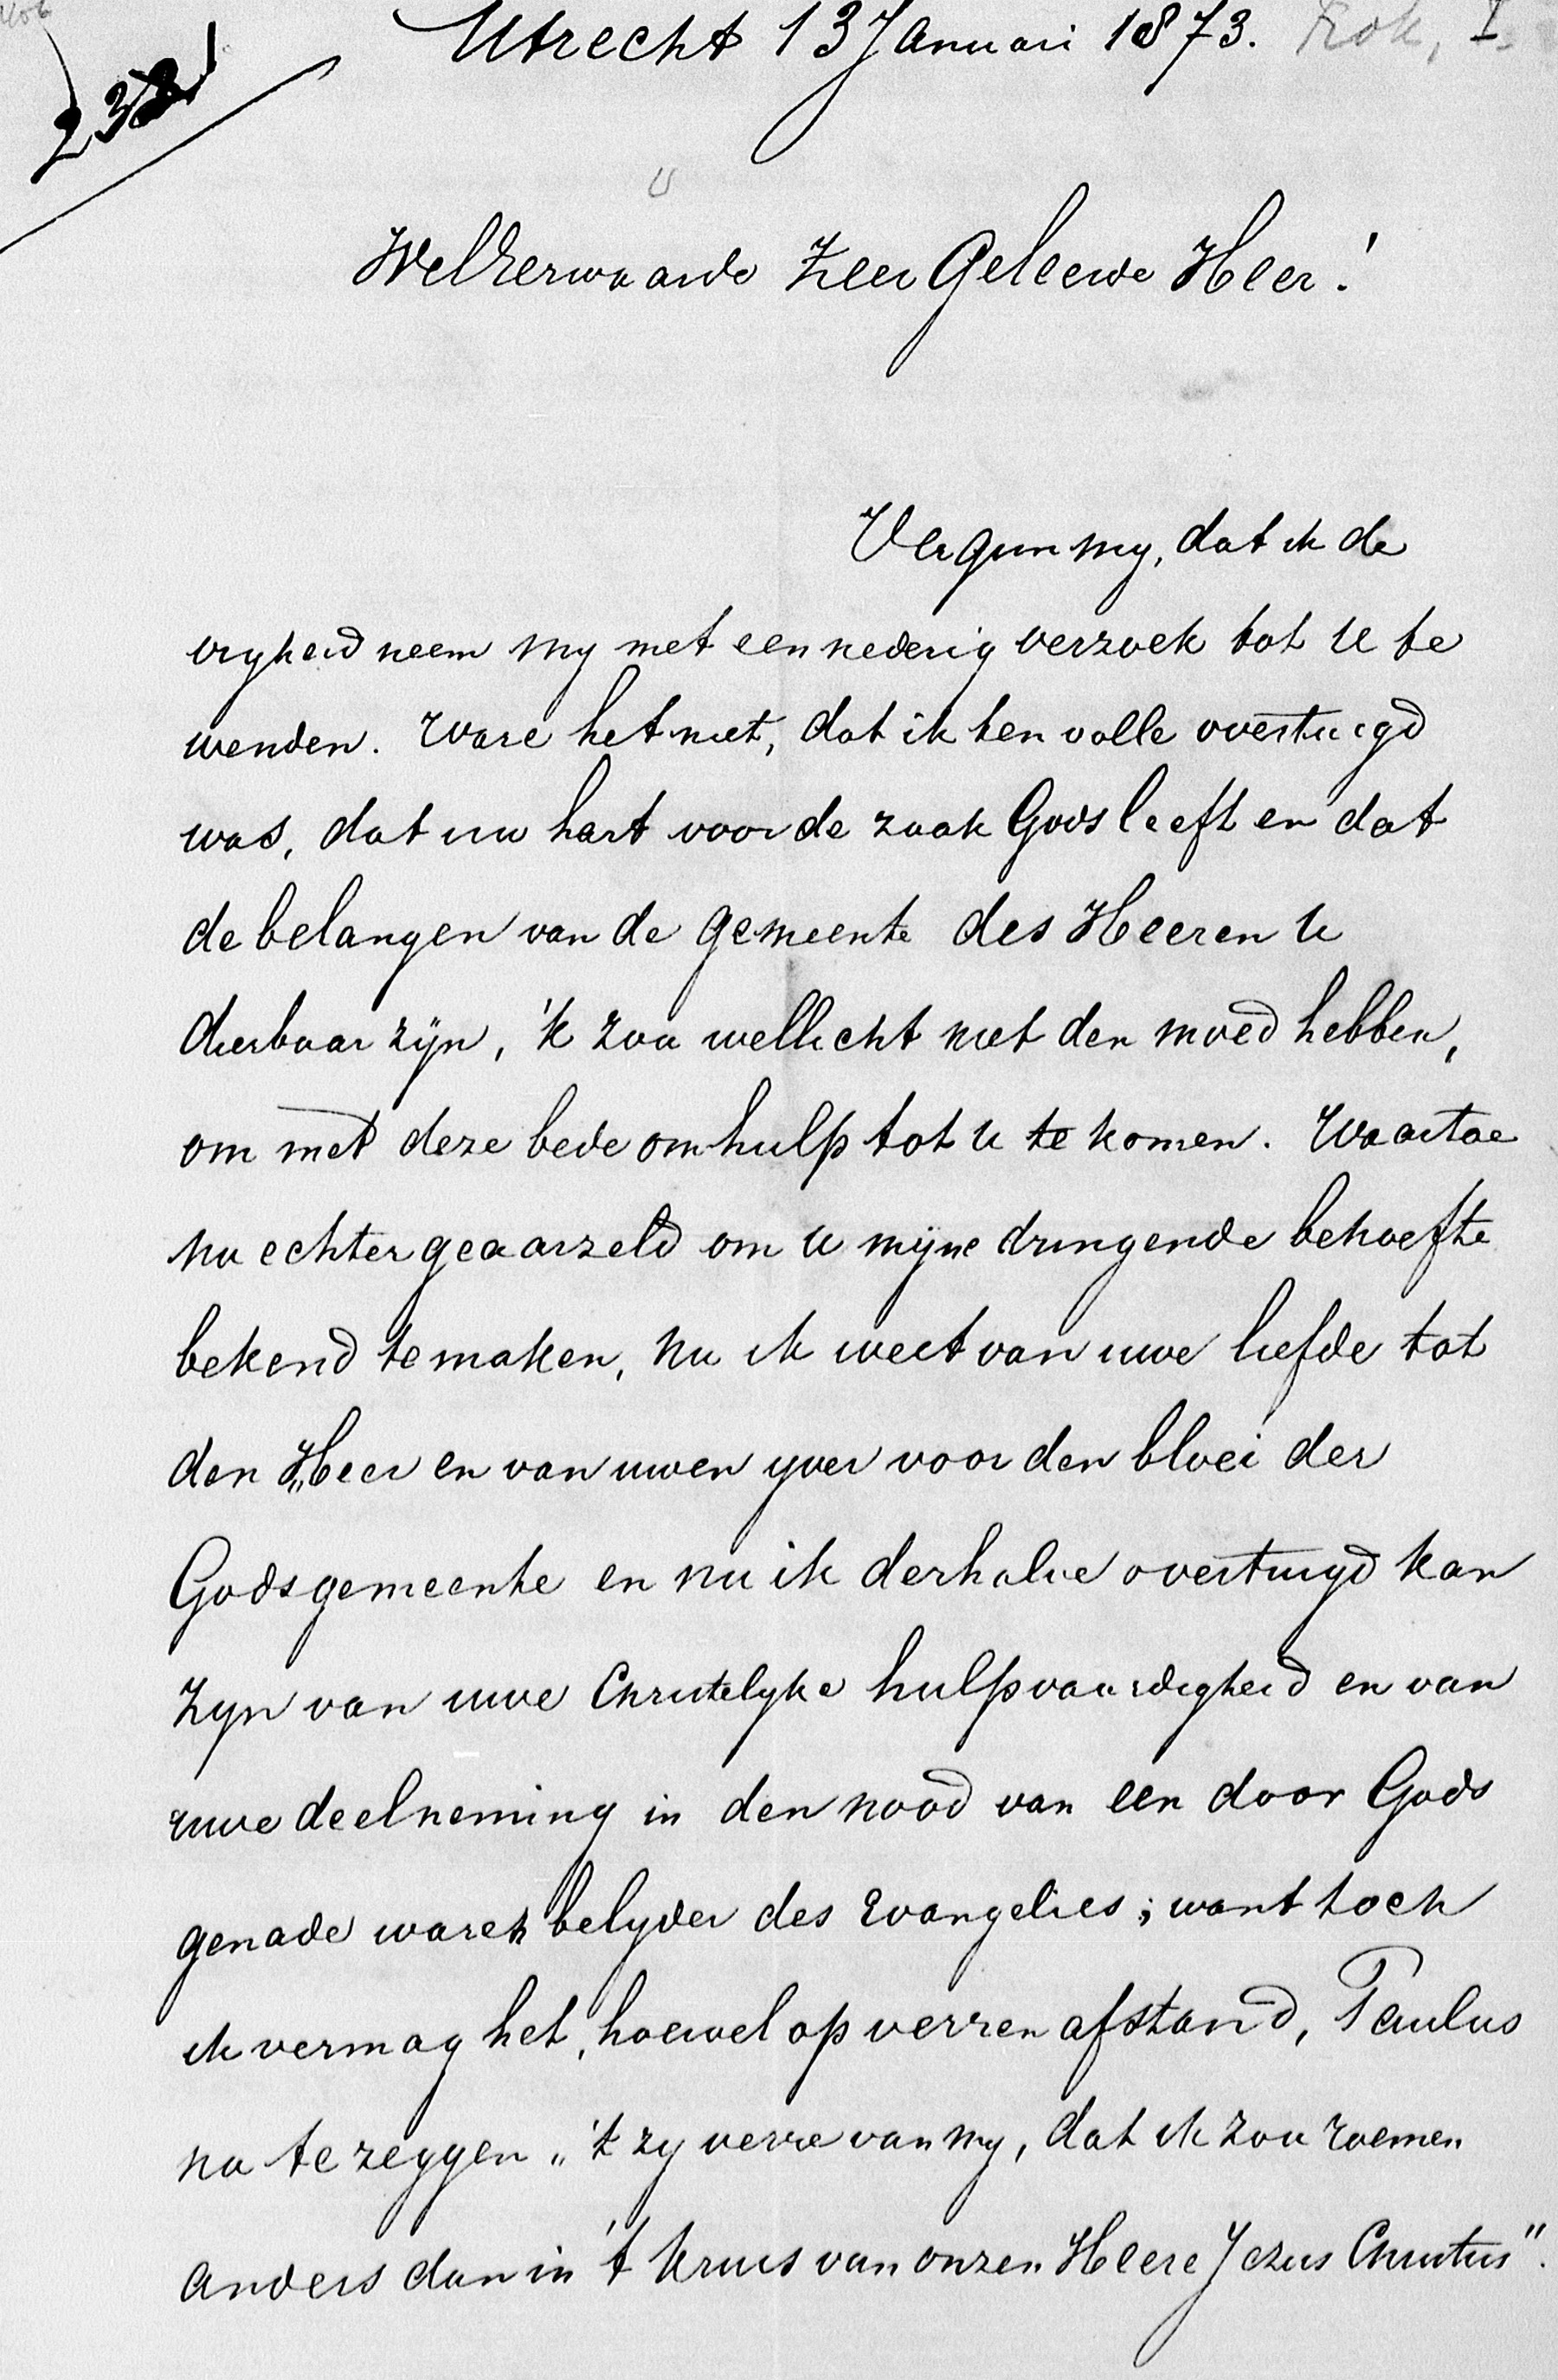 Utrecht 13 Januari 1873. Kok, I
238
WelEerwaarde Zeer Geleerde Heer!
Vergun my, dat ik de
vryheid neem my met een nederig verzoek tot U te
wenden. Ware het niet, dat ik ten volle overtuigd
was, dat uw hart voor de zaak Gods leeft en dat
de belangen van de gemeente des Heeren U
dierbaar zijn, 'k zou wellicht niet den moed hebben,
om met deze bede om hulp tot U te komen. Waartoe
nu echter geaarzeld om U mijne dringende behoefte
bekend te maken, nu ik weet van uwe liefde tot
den Heer en van uwen yver voor den bloei der
Godsgemeente en nu ik derhalve overtuigd kan
zyn van uwe Christelyke hulpvaardigheid en van
uwe deelneming in den nood van een door Gods
genade waren belyder des Evangelies; want toch
ik vermag het, hoewel op verren afstand, Paulus
na te zeggen „'t zy verre van my, dat ik zou roemen
anders dan in 't kruis van onzen Heere Jezus Christus".